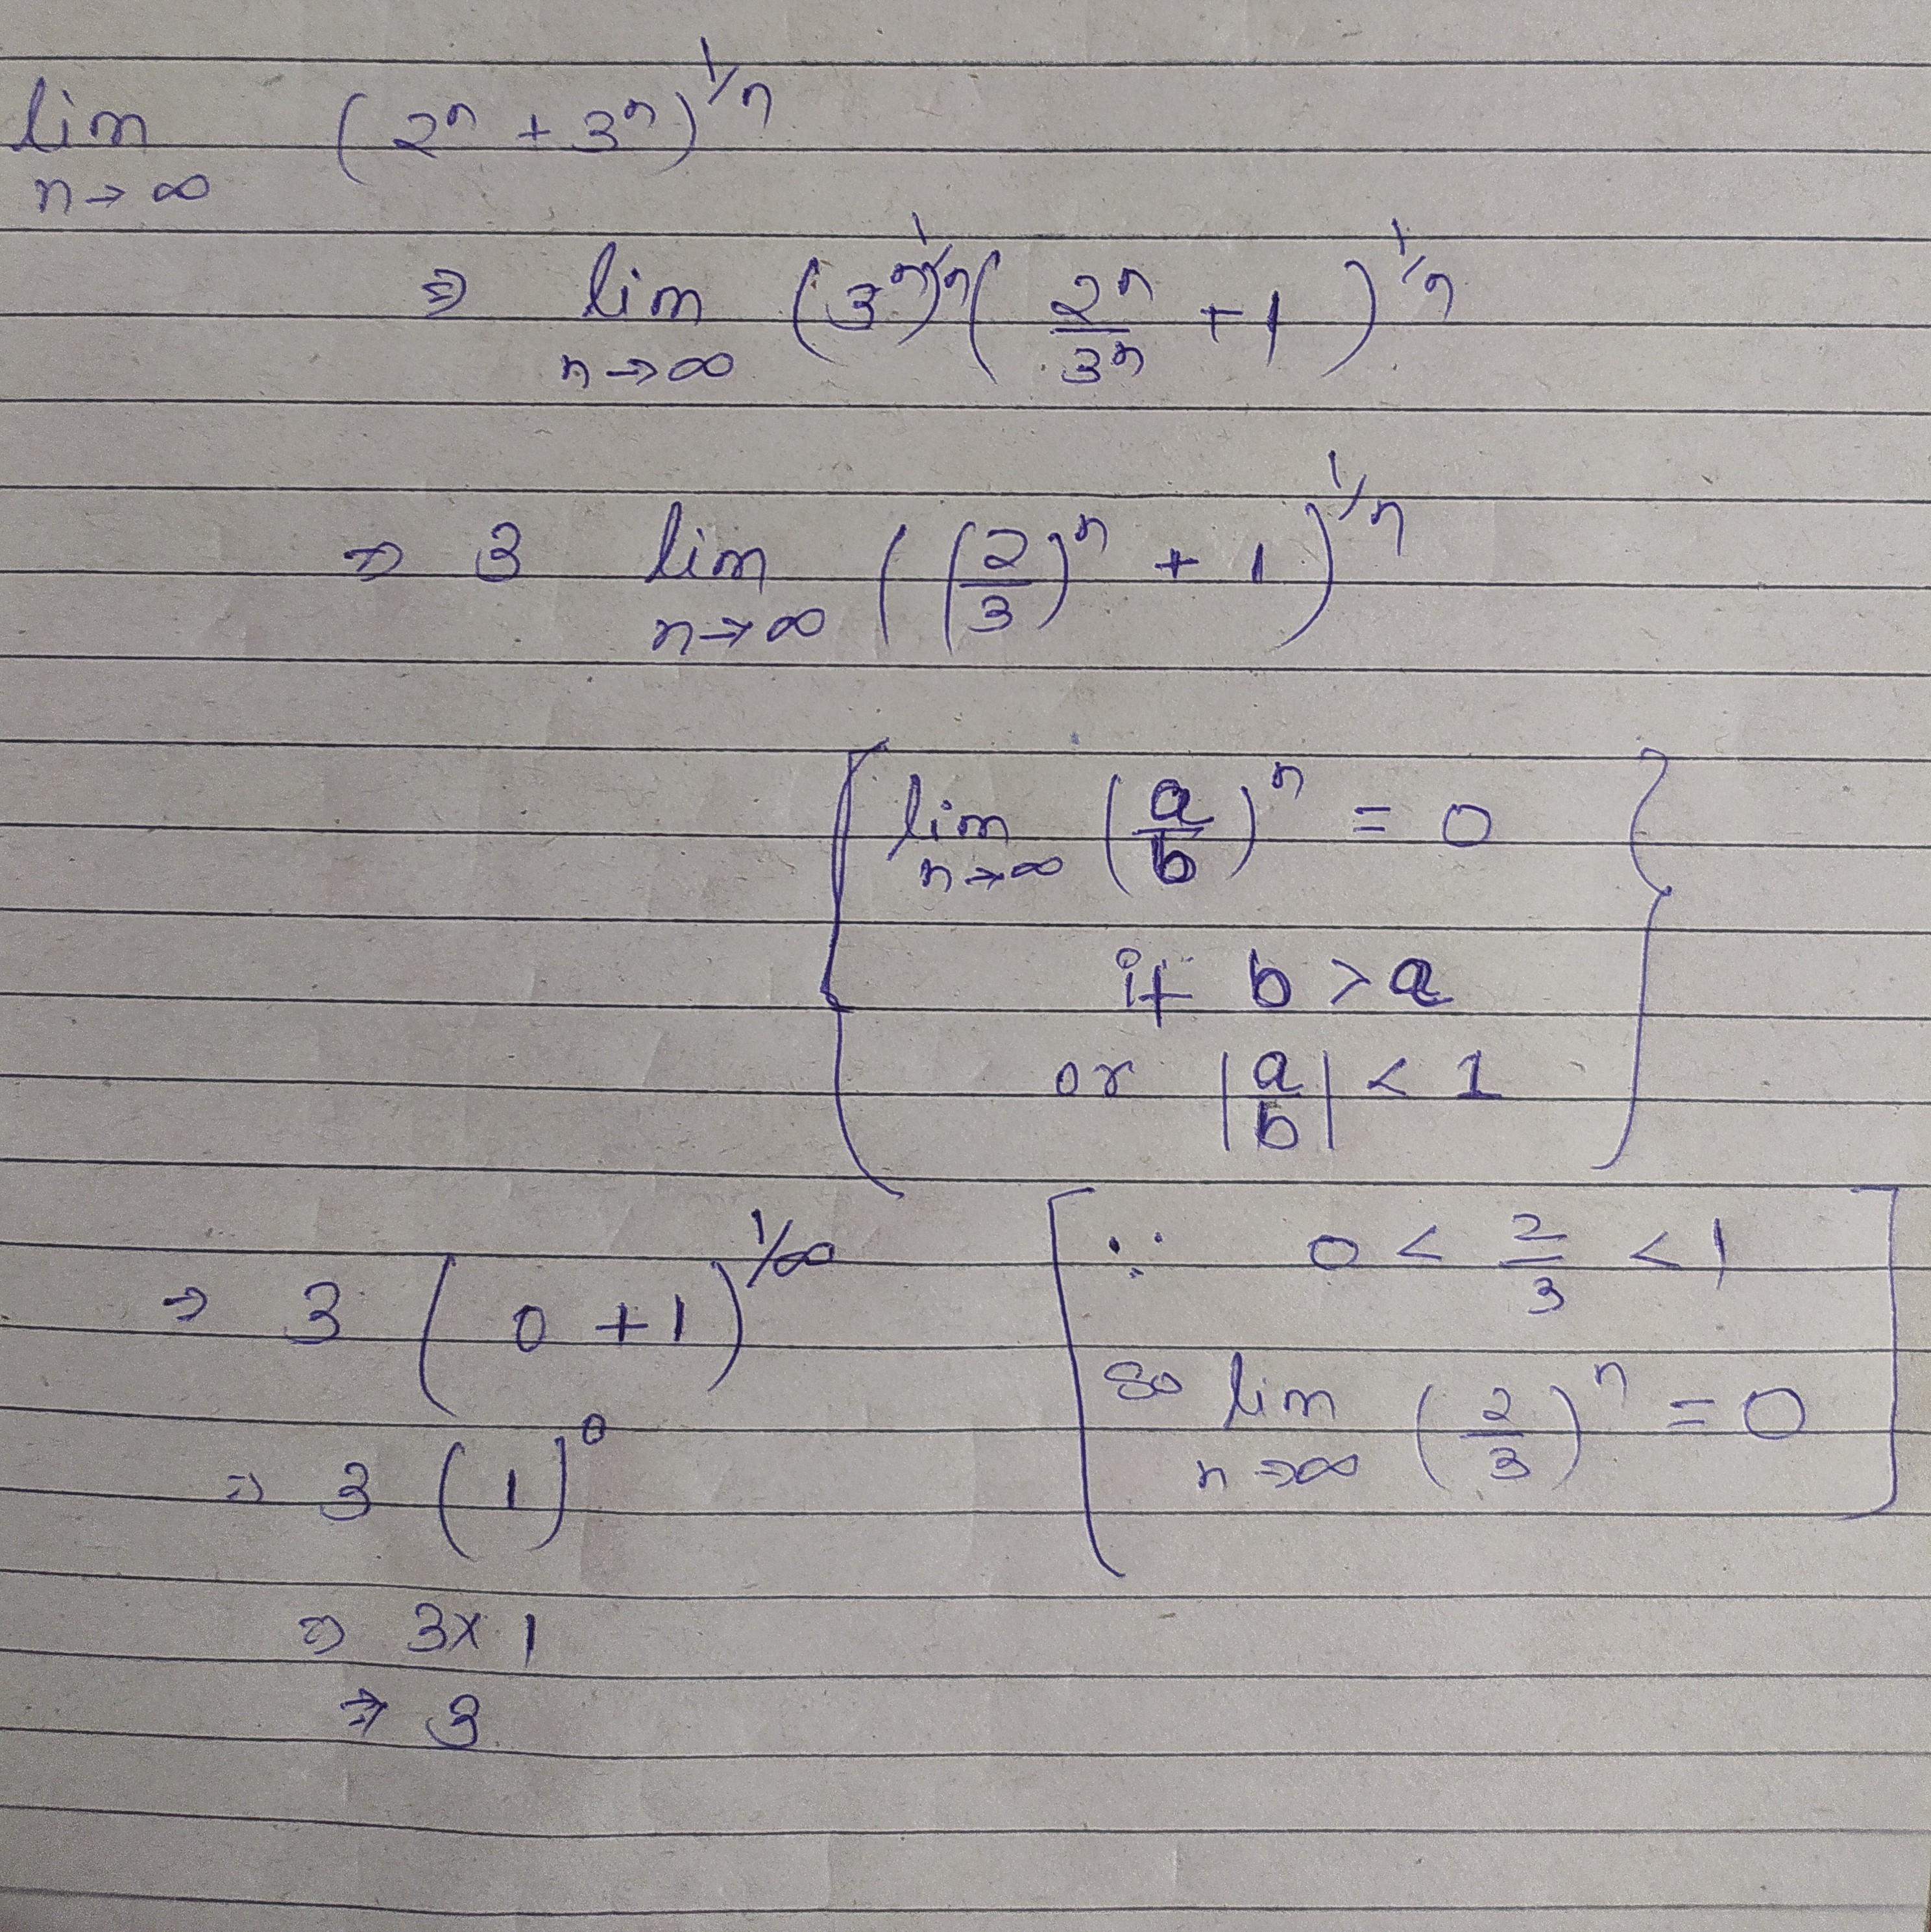 lim (2ⁿ + 3ⁿ)^1/n
n→∞
⇒ lim (3ⁿ)^1/n (2ⁿ/3ⁿ + 1)^1/n
n→∞
⇒ 3 lim ((2/3)ⁿ + 1)^1/n
n→∞
{ lim (a/b)ⁿ = 0 }
n→∞
if b > a
or |a/b| < 1
⇒ 3 (0 + 1)^1/∞ [∵ 0 < 2/3 < 1
so lim (2/3)ⁿ = 0]
n→∞
⇒ 3 (1)⁰
⇒ 3 × 1
⇒ 3